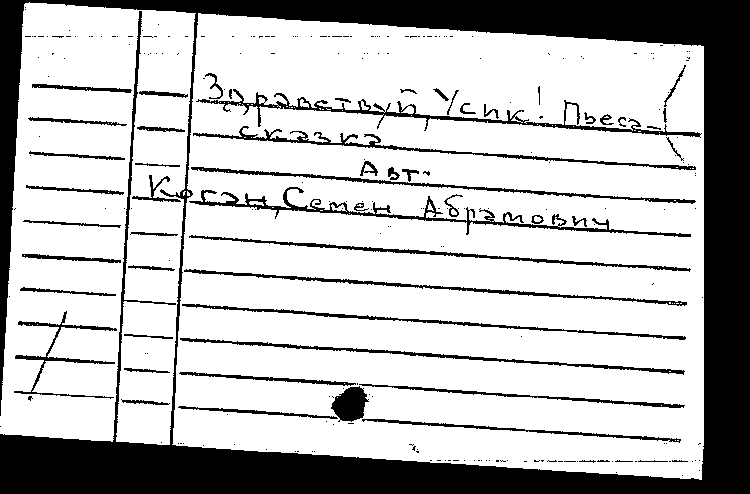 Здравствуй, Усик! Пьеса-
сказка
Авт.
Коган, Семен Абрамович